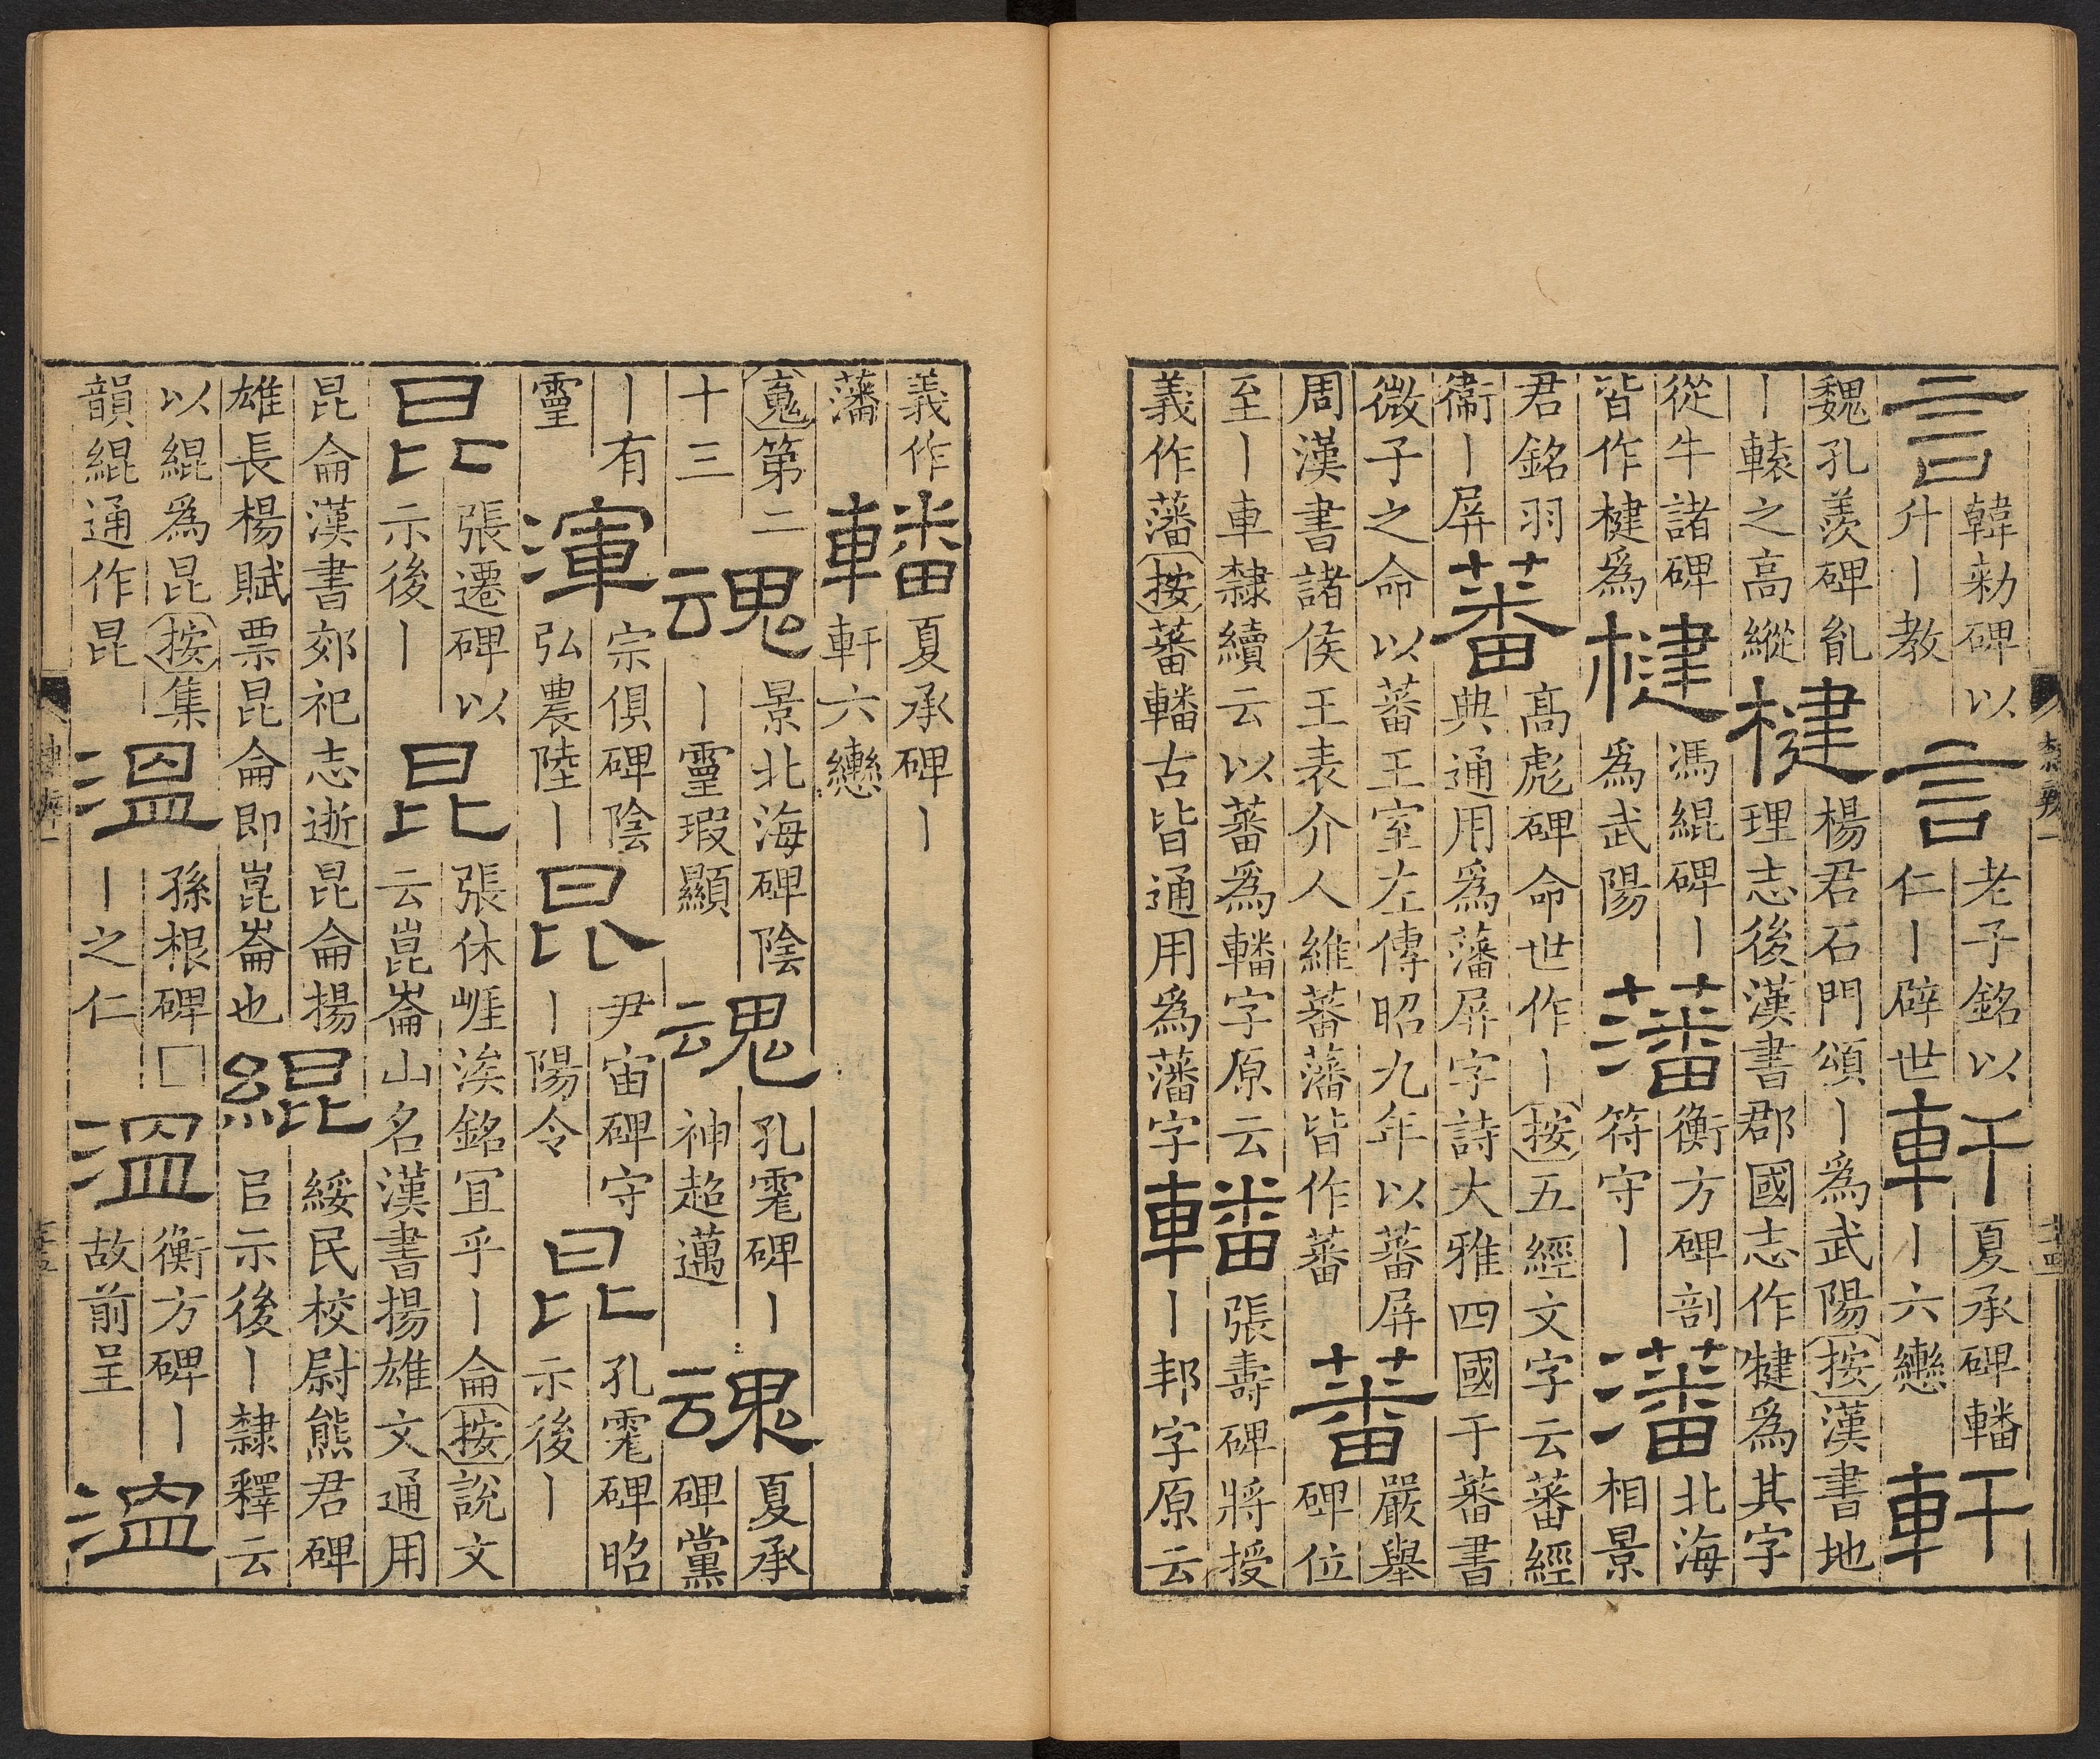 言韓勑碑以升丨教言老子銘以仁丨辟世軒夏承碑轓丨六轡軒
魏孔羨碑亂丨轅之高縱楗楊君石門頌丨爲武陽按漢書地理志後漢書郡國志作犍爲其字
從牛諸碑皆作楗爲楗馮緄碑丨爲武陽藩衡方碑剖符守丨藩北海相景
君銘羽衞丨屏蕃高彪碑命世作丨按五經文字云蕃經典通用爲藩屏字詩大雅四國于蕃書
微子之命以蕃王室左傳昭九年以蕃屏周漢書諸侯王表介人維蕃藩皆作蕃蕃嚴舉碑位
至丨車隸續云以蕃爲轓字原云義作藩按蕃轓古皆通用爲藩字轓張壽碑將授丨邦字原云
義作藩轓夏承碑丨軒六轡
䰟第二十三魂景北海碑陰丨靈瑕顯魂孔霔碑丨神超邁魂夏承碑黨
丨有靈渾宗俱碑陰弘農陸丨昆尹宙碑守丨陽令昆孔霔碑昭示後丨
昆張遷碑以示後丨昆張休崕涘銘宜乎丨侖按說文云崑崙山名漢書揚雄文通用
昆侖漢書郊祀志逝昆侖揚雄長楊賦票昆侖即崑崙也緄綏民校尉熊君碑㠯示後丨隸釋云
以緄爲昆按集韻緄通作昆溫孫根碑□丨之仁溫衡方碑丨故前呈溫